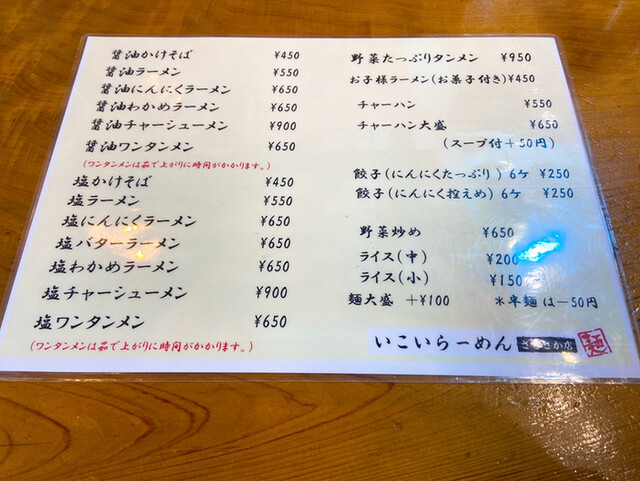 醤油かけそば ¥450
醤油ラーメン ¥550
醤油にんにくラーメン ¥650
醤油わかめラーメン ¥650
醤油チャーシューメン ¥900
醤油ワンタンメン ¥650
(ワンタンメンは茹で上がりに時間がかかります。)
塩かけそば ¥450
塩ラーメン ¥550
塩にんにくラーメン ¥650
塩バターラーメン ¥650
塩わかめラーメン ¥650
塩チャーシューメン ¥900
塩ワンタンメン ¥650
(ワンタンメンは茹で上がりに時間がかかります。)
野菜たっぷりタンメン ¥950
お子様ラーメン(お菓子付き)¥450
チャーハン ¥550
チャーハン大盛 ¥650
(スープ付+50円)
餃子(にんにくたっぷり) 6ケ ¥250
餃子(にんにく控えめ) 6ケ ¥250
野菜炒め ¥650
ライス(中) ¥200
ライス(小) ¥150
麺大盛 +¥100 *半麺は-50円
いこいらーめん